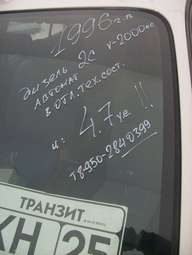 1996 г.в.
дизель 2С V-2000 сс
автомат
в отл. тех. сост.
ц: 4.7 уе !!
т8950-2840399
ТРАНЗИТ
КН 25